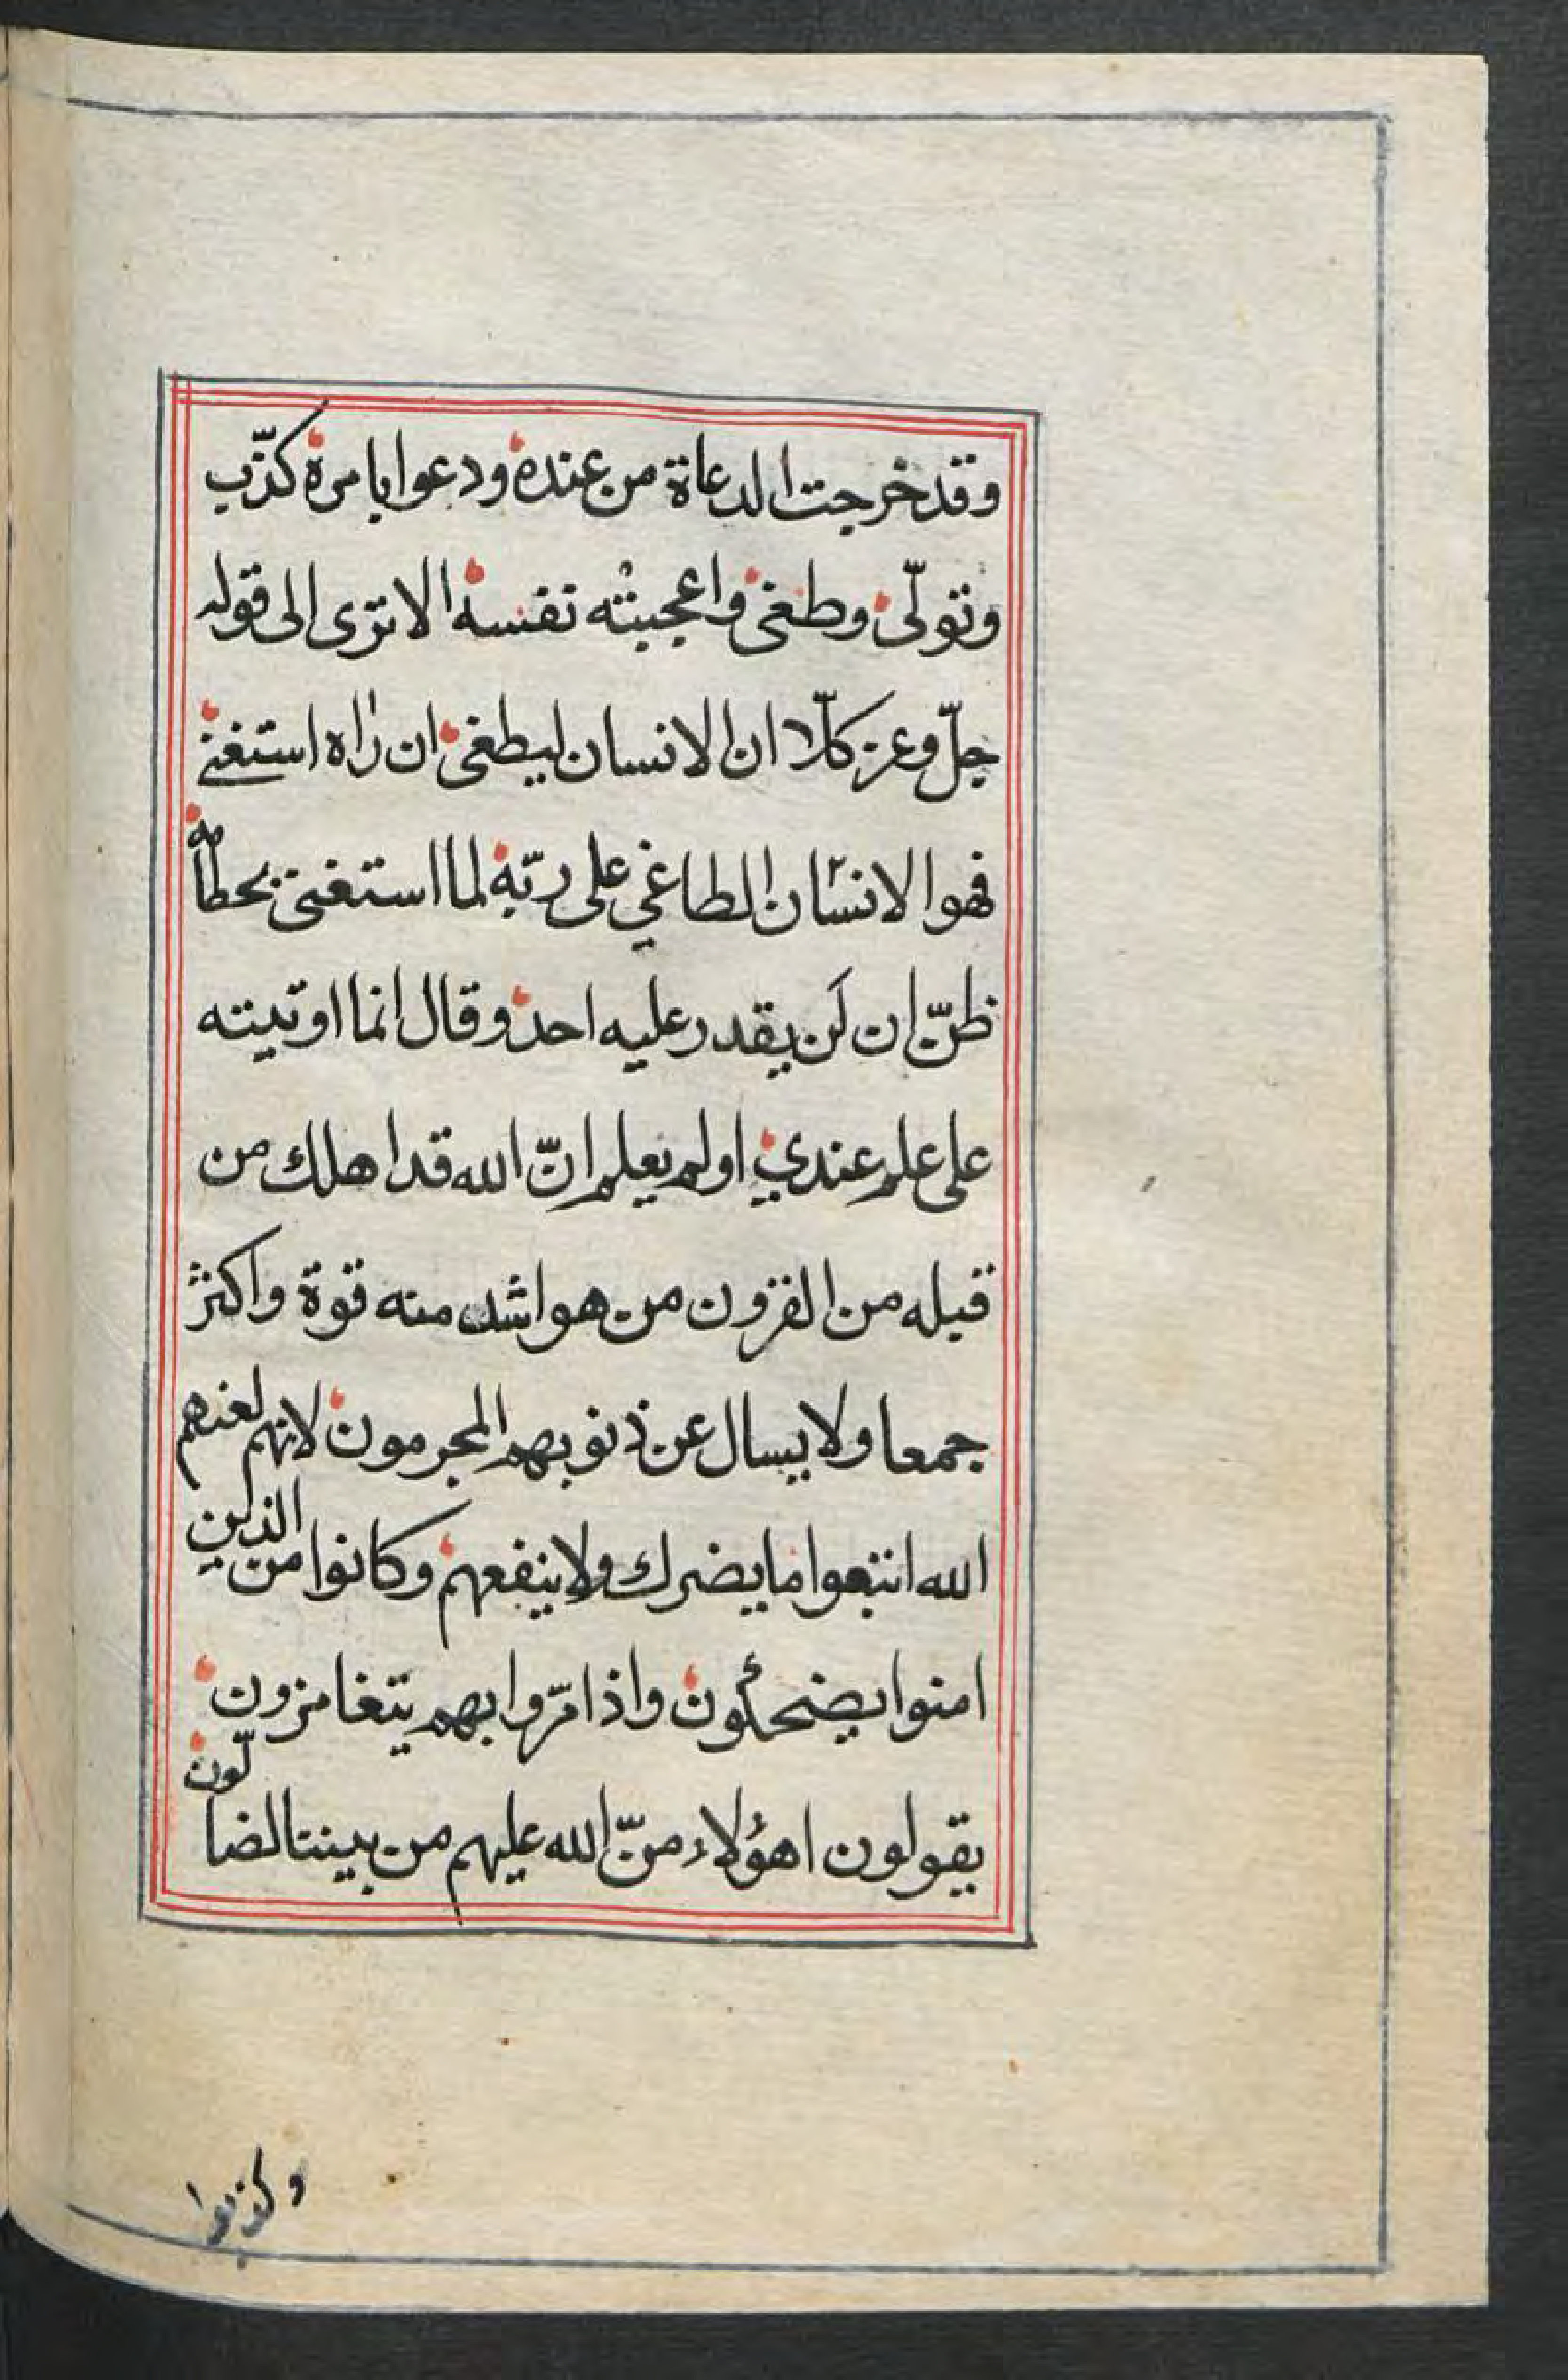 وقد خرجت الدعاة من عنده ودعوا بامره كذّب
وتولّى وطغى واعجبته نفسه الا ترى الى قوله
جلّ وعز كلّا ان الانسان ليطغى ان راه استغنى
فهو الانسان الطاغي على ربّه لما استغنى بحطامه
ظنّ ان لن يقدر عليه احد وقال انما اوتيته
على علم عندي اولم يعلم انّ الله قد اهلك من
قبله من القرون من هو اشد منه قوة واكثر
جمعا ولا يسال عن ذنوبهم المجرمون لانهم لعنهم
الله اتبعوا ما يضرك ولا ينفعهم وكانوا من الذين
امنوا يضحكون واذا مرّوا بهم يتغامزون
يقولون اهؤلاء منّ الله عليهم من بيننا لضالّون
وكذبوا